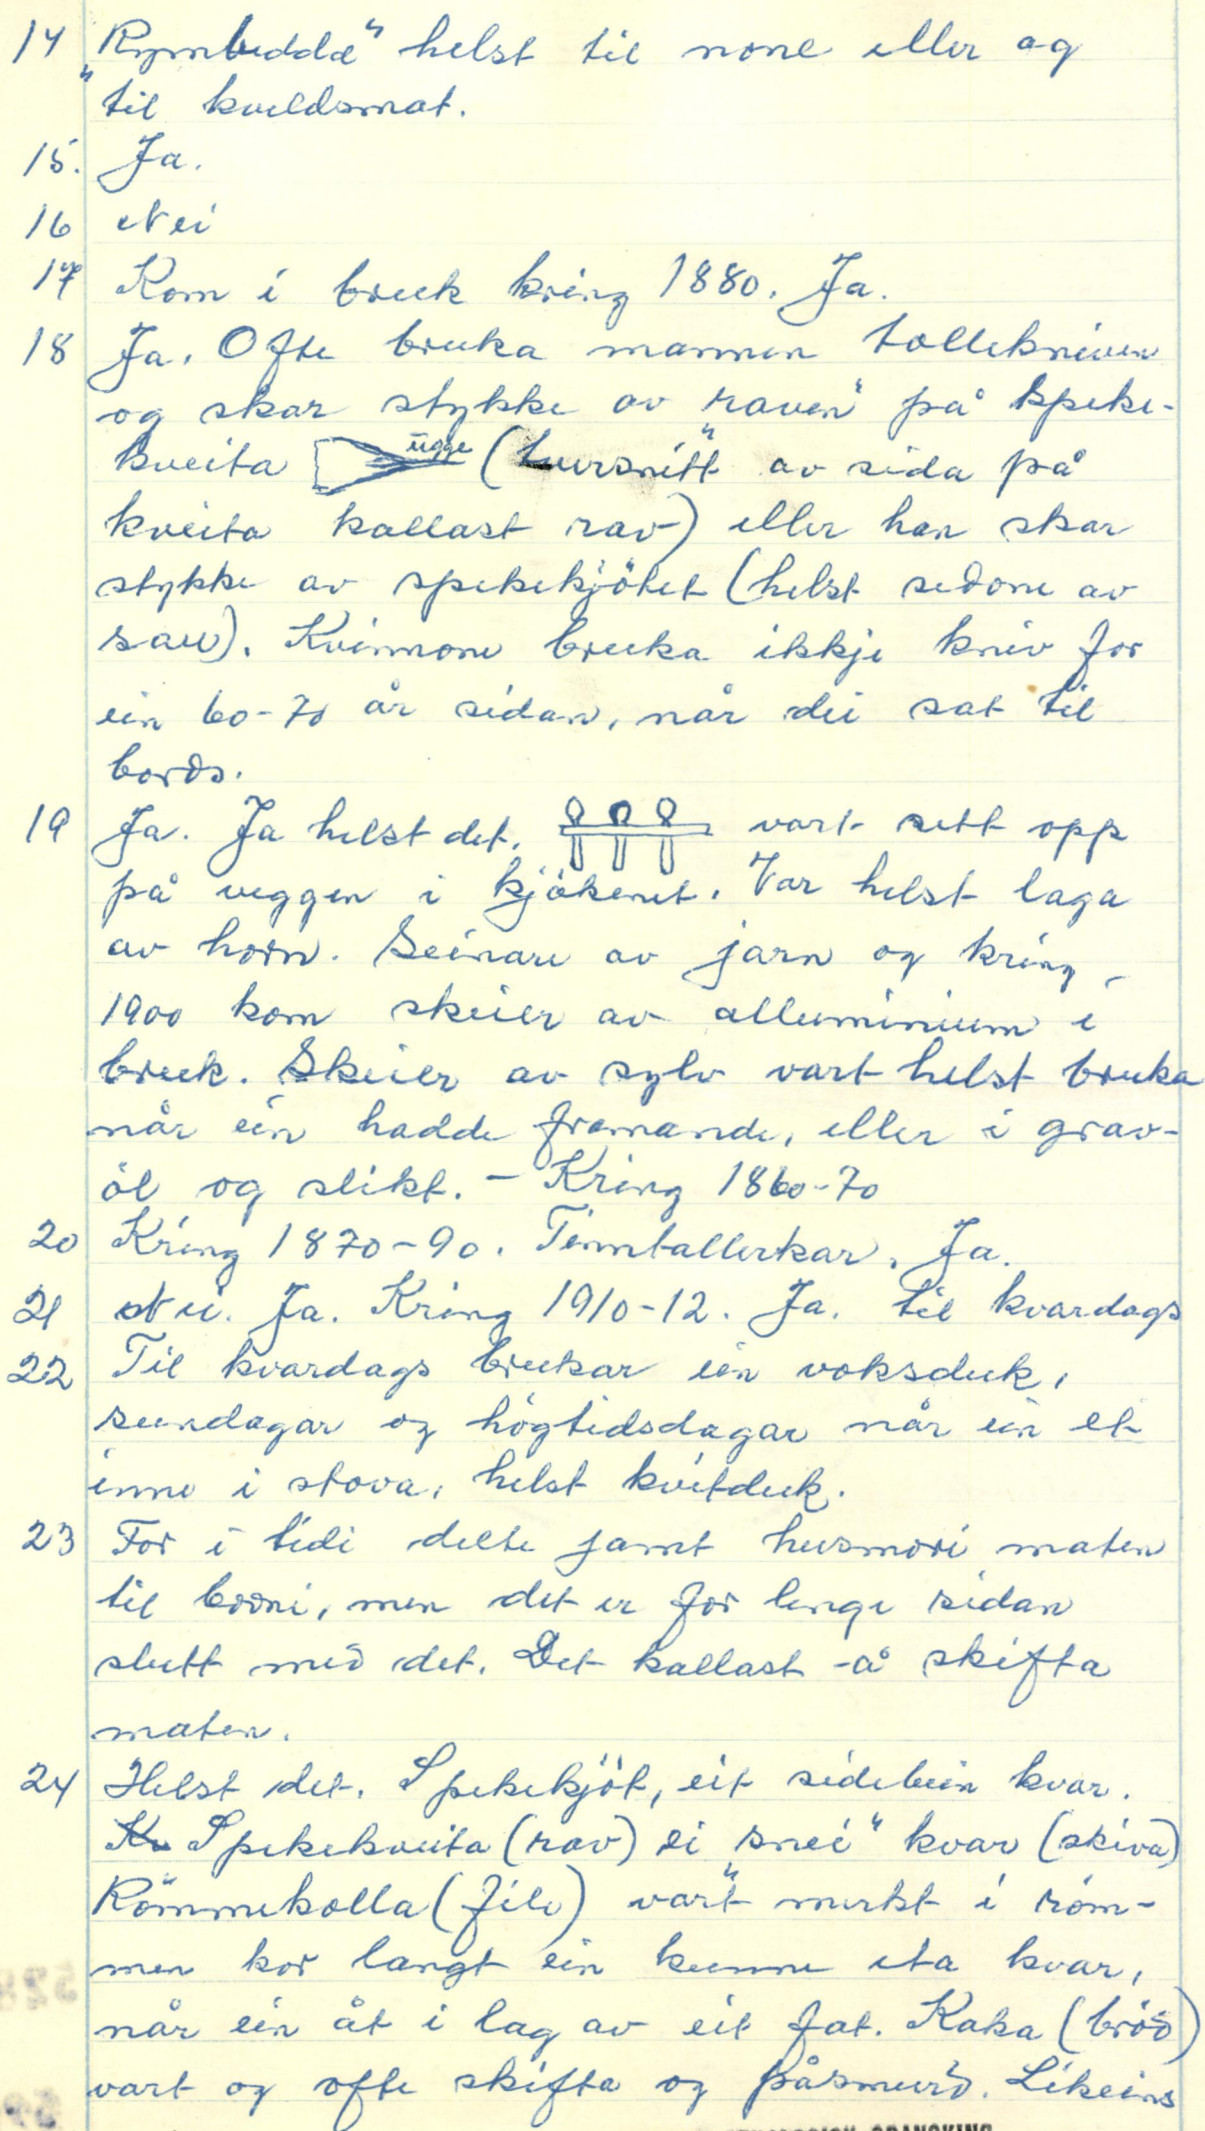 14 "Rymbuddæ" helst til none eller og
til kveldsmat.
15. Ja.
16 Nei
17 Kom i bruk kring 1880. Ja.
18 Ja. Ofte bruka mannen tollekniven
og skar stykke av "raven" på speke-
kveita ugge (tversnitt av sida på
kveita kallast rav) eller han skar
stykke av spekekjötet (helst sidone av
sau). Kvinnone bruka ikkje kniv for
ein 60-70 år sidan, når dei sat til
bords.
19 Ja. Ja helst det. vart sett opp
på veggen i kjökenet. Var helst laga
av horn. Seinare av jarn og kring
1900 kom skeier av alluminium i
bruk. Skeier av sylv vart helst bruka
når ein hadde framande, eller i grav-
öl og slikt. - Kring 1860-70
20 Kring 1870-90. Tinntallerkar. Ja.
21 Nei. Ja. Kring 1910-12. Ja. til kvardags
22 Til kvardags brukar ein voksduk,
sundagar og högtidsdagar når ein et
inne i stova, helst kvitduk.
23 For i tidi delte jamt husmori maten
til borni, men det er for lenge sidan
slutt med det. Det kallast å skifta
maten.
24 Helst det. Spekekjöt, eit sidebein kvar.
Spekekveita (rav) ei "snei" kvar (skiva)
Römmekolla (file) vart merkt i röm-
men kor langt ein kunne eta kvar,
når ein åt i lag av eit fat. Kaka (bröd)
vart og ofte skifta og påsmurd. Likeins